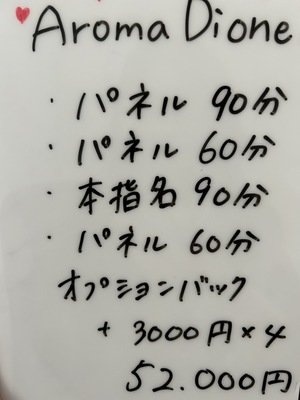 Aroma Dione
・パネル 90分
・パネル 60分
・本指名 90分
・パネル 60分
オプションバック
+ 3000円×4
52.000円